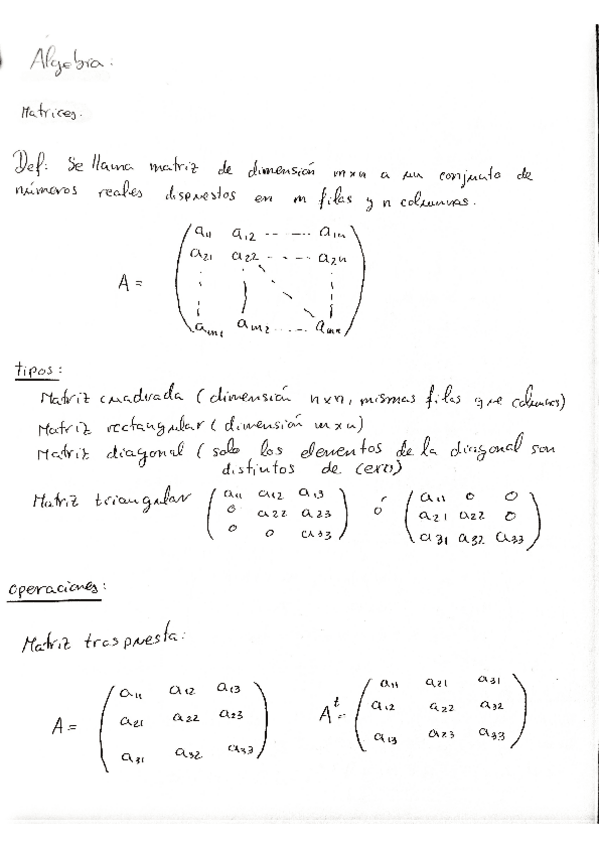 Algebra:
Matrices.
Def: Se llama matriz de dimensión mxn a un conjunto de
números reales dispuestos en m filas y n columnas.
a11 a12 -- -- -- a1n
a21 a22 - - - - a2n
A =
am1 am2 ..... amn
tipos:
Matriz cuadrada (dimensión nxn, mismas filas que columnas)
Matriz rectangular (dimensión mxn)
Matriz diagonal (solo los elementos de la diagonal son
distintos de cero)
Matriz triangular ( a11 a12 a13 ) ó ( a11 0 0 )
0 a22 a23 a21 a22 0
0 0 a33 a31 a32 a33
operaciones:
Matriz traspuesta:
a11 a12 a13 a11 a21 a31
A = a21 a22 a23 At = a12 a22 a32
a31 a32 a33 a13 a23 a33